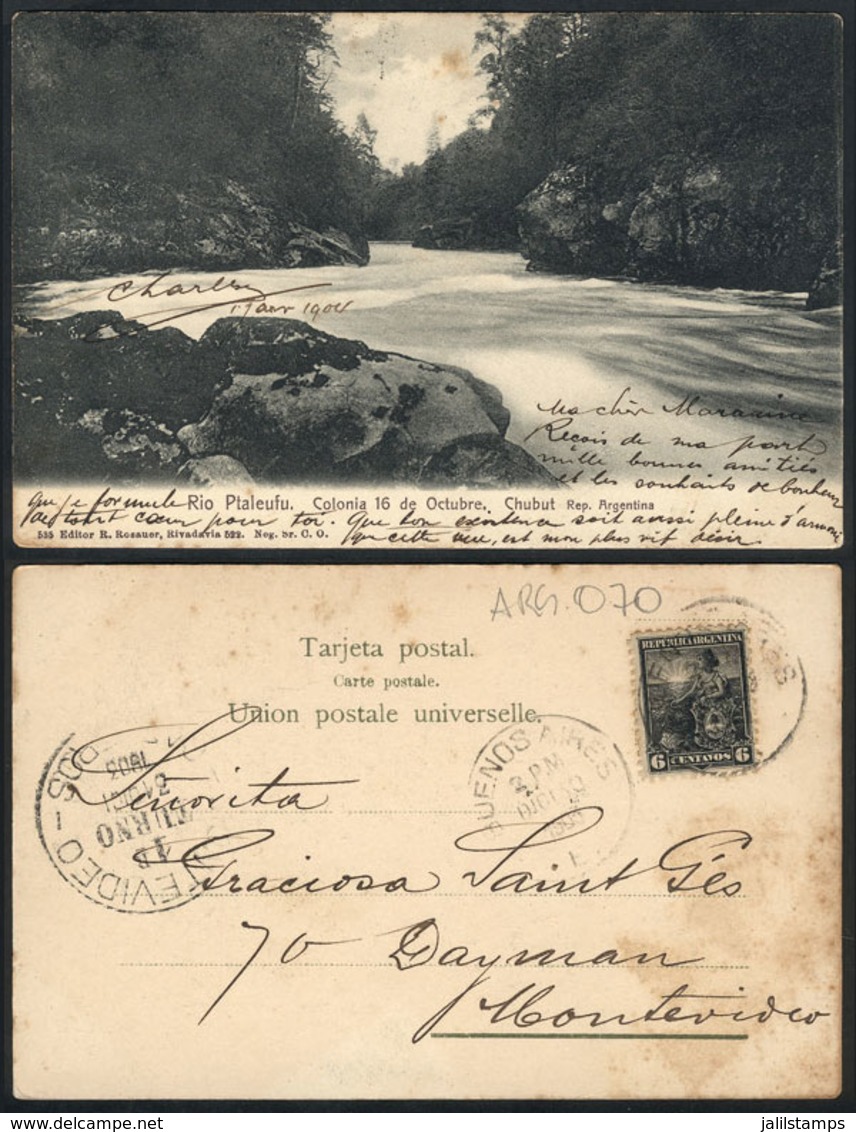 1 Janv 1904
Ma chère Marraine
Reçois de ma part
mille bonnes amitiés
et les souhaits de bonheur
que je formule
de tout cœur pour toi. Que ton existence soit aussi pleine d'armoni
que cette vue, est mon plus vif désir.
Rio Ptaleufu. Colonia 16 de Octubre. Chubut Rep. Argentina
535 Editor R. Rosauer, Rivadavia 522. Neg. Sr. C. O.
ARG. 070
Tarjeta postal.
Carte postale.
Union postale universelle.
REPUBLICA ARGENTINA
6 CENTAVOS 6
BUENOS AIRES
2 PM
1903
TEVIDEO
1903
TURNO
Señorita
Graciosa Saint Gés
70 Dayman
Montevideo
jalilstamps